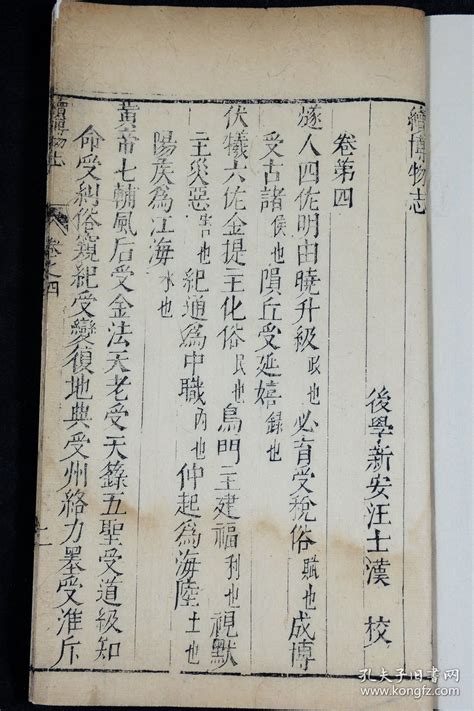 續博物志
後學新安汪士漢 校
卷第四
燧人四佐明由曉升級政也必育受稅俗賦也成博
受古諸侯也隕丘受延嬉錄也
伏犧六佐金提主化俗民也鳥門主建福利也視默
主災惡害也紀通爲中職內也仲起爲海陸土也
陽矦爲江海水也
黃帝七輔風后受金法天老受天籙五聖受道級知
命受糾俗窺紀受變復地典受州絡力墨受準斥
續博物志
卷之四
一
孔夫子旧书网
www.kongfz.com